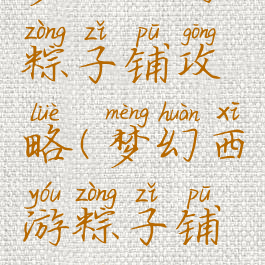 zòng zǐ pū gōng
粽子铺攻
lüè mèng huàn xī
略(梦幻西
yóu zòng zǐ pū
游粽子铺